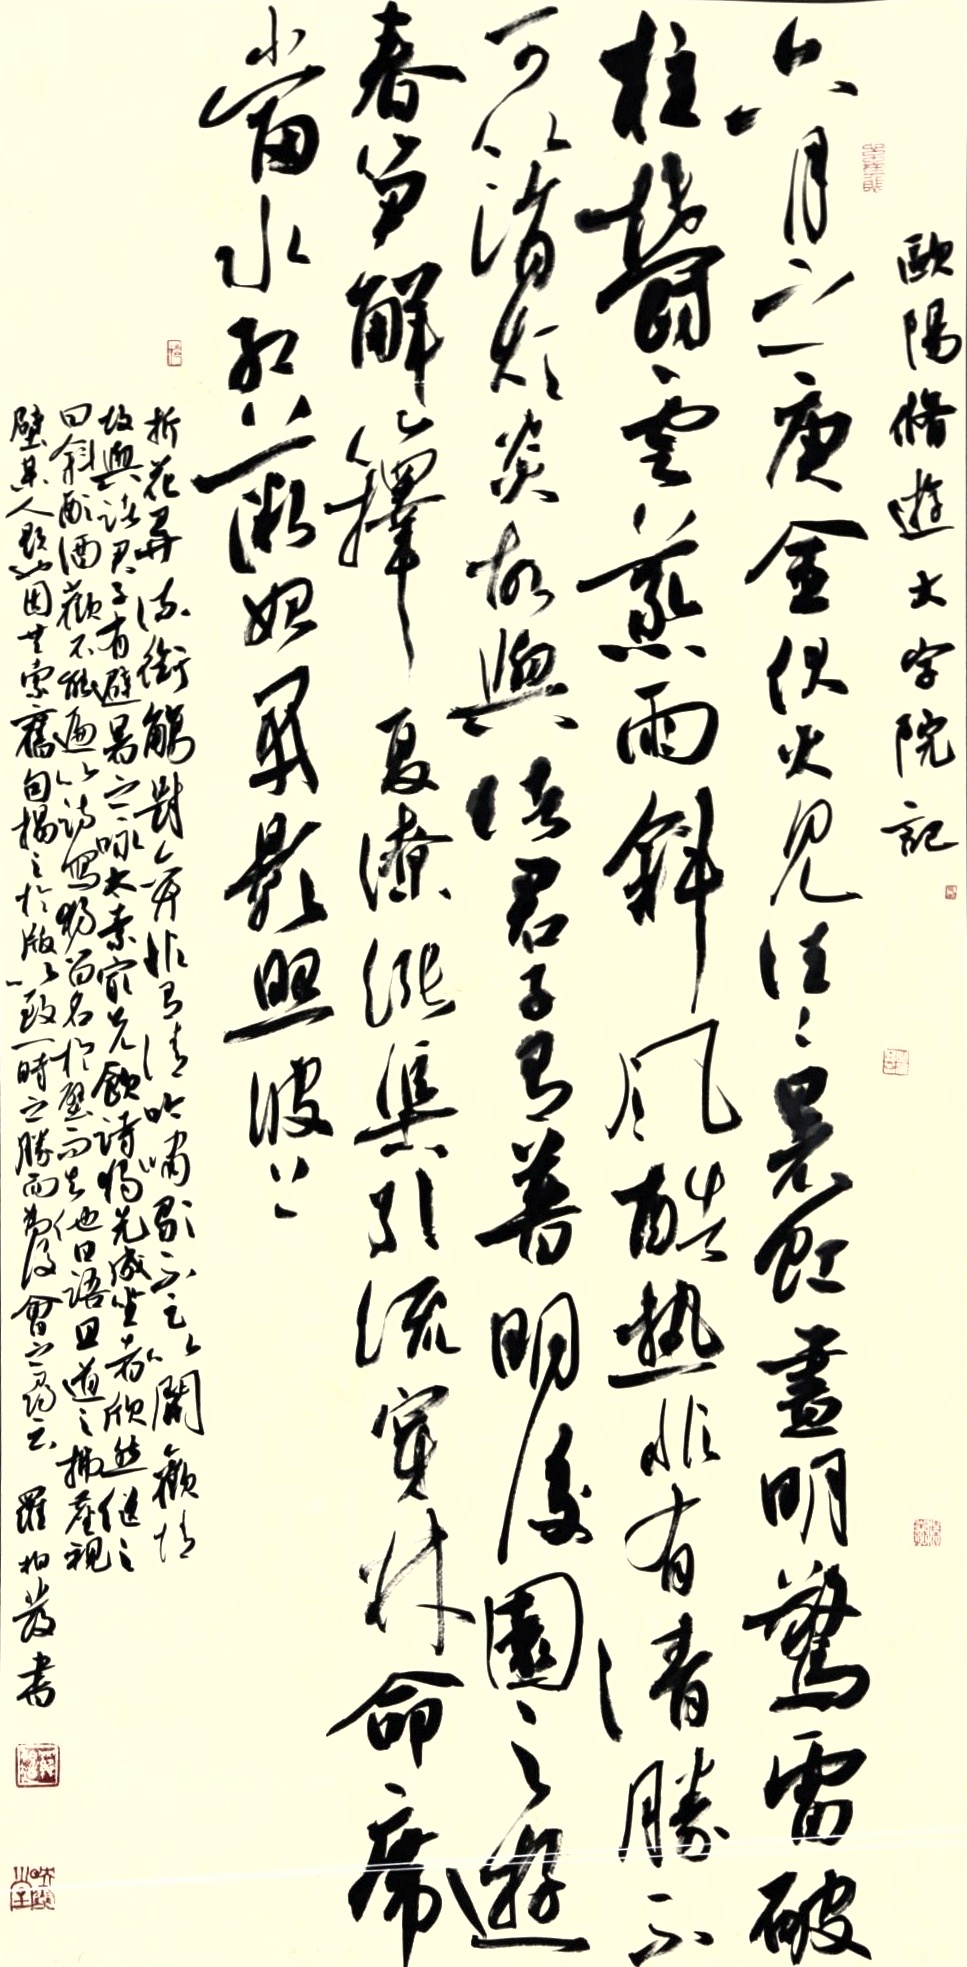 歐陽脩遊大字院記
六月之庚金伏火見往〻暑虹晝明驚雷破
柱鬱雲蒸雨斜風酷熱非有清勝不
可以消煩炎故與諸君子有普明後園之遊
春筍解籜夏潦漲渠引流穿林命席
當水紅薇始開影照波上
折花弄流銜觴對弈非有清吟嘯歌不足以開歡情
故與諸君子有避暑之詠太素最少飲詩獨先成坐者欣然繼之
日斜酣酒歡不能遍以詩寫獨留名於壁而去他日語且道之拂塵視
壁某人題也因共索舊句揭之於版以致一時之勝而為後會之尋云 羅柏發書